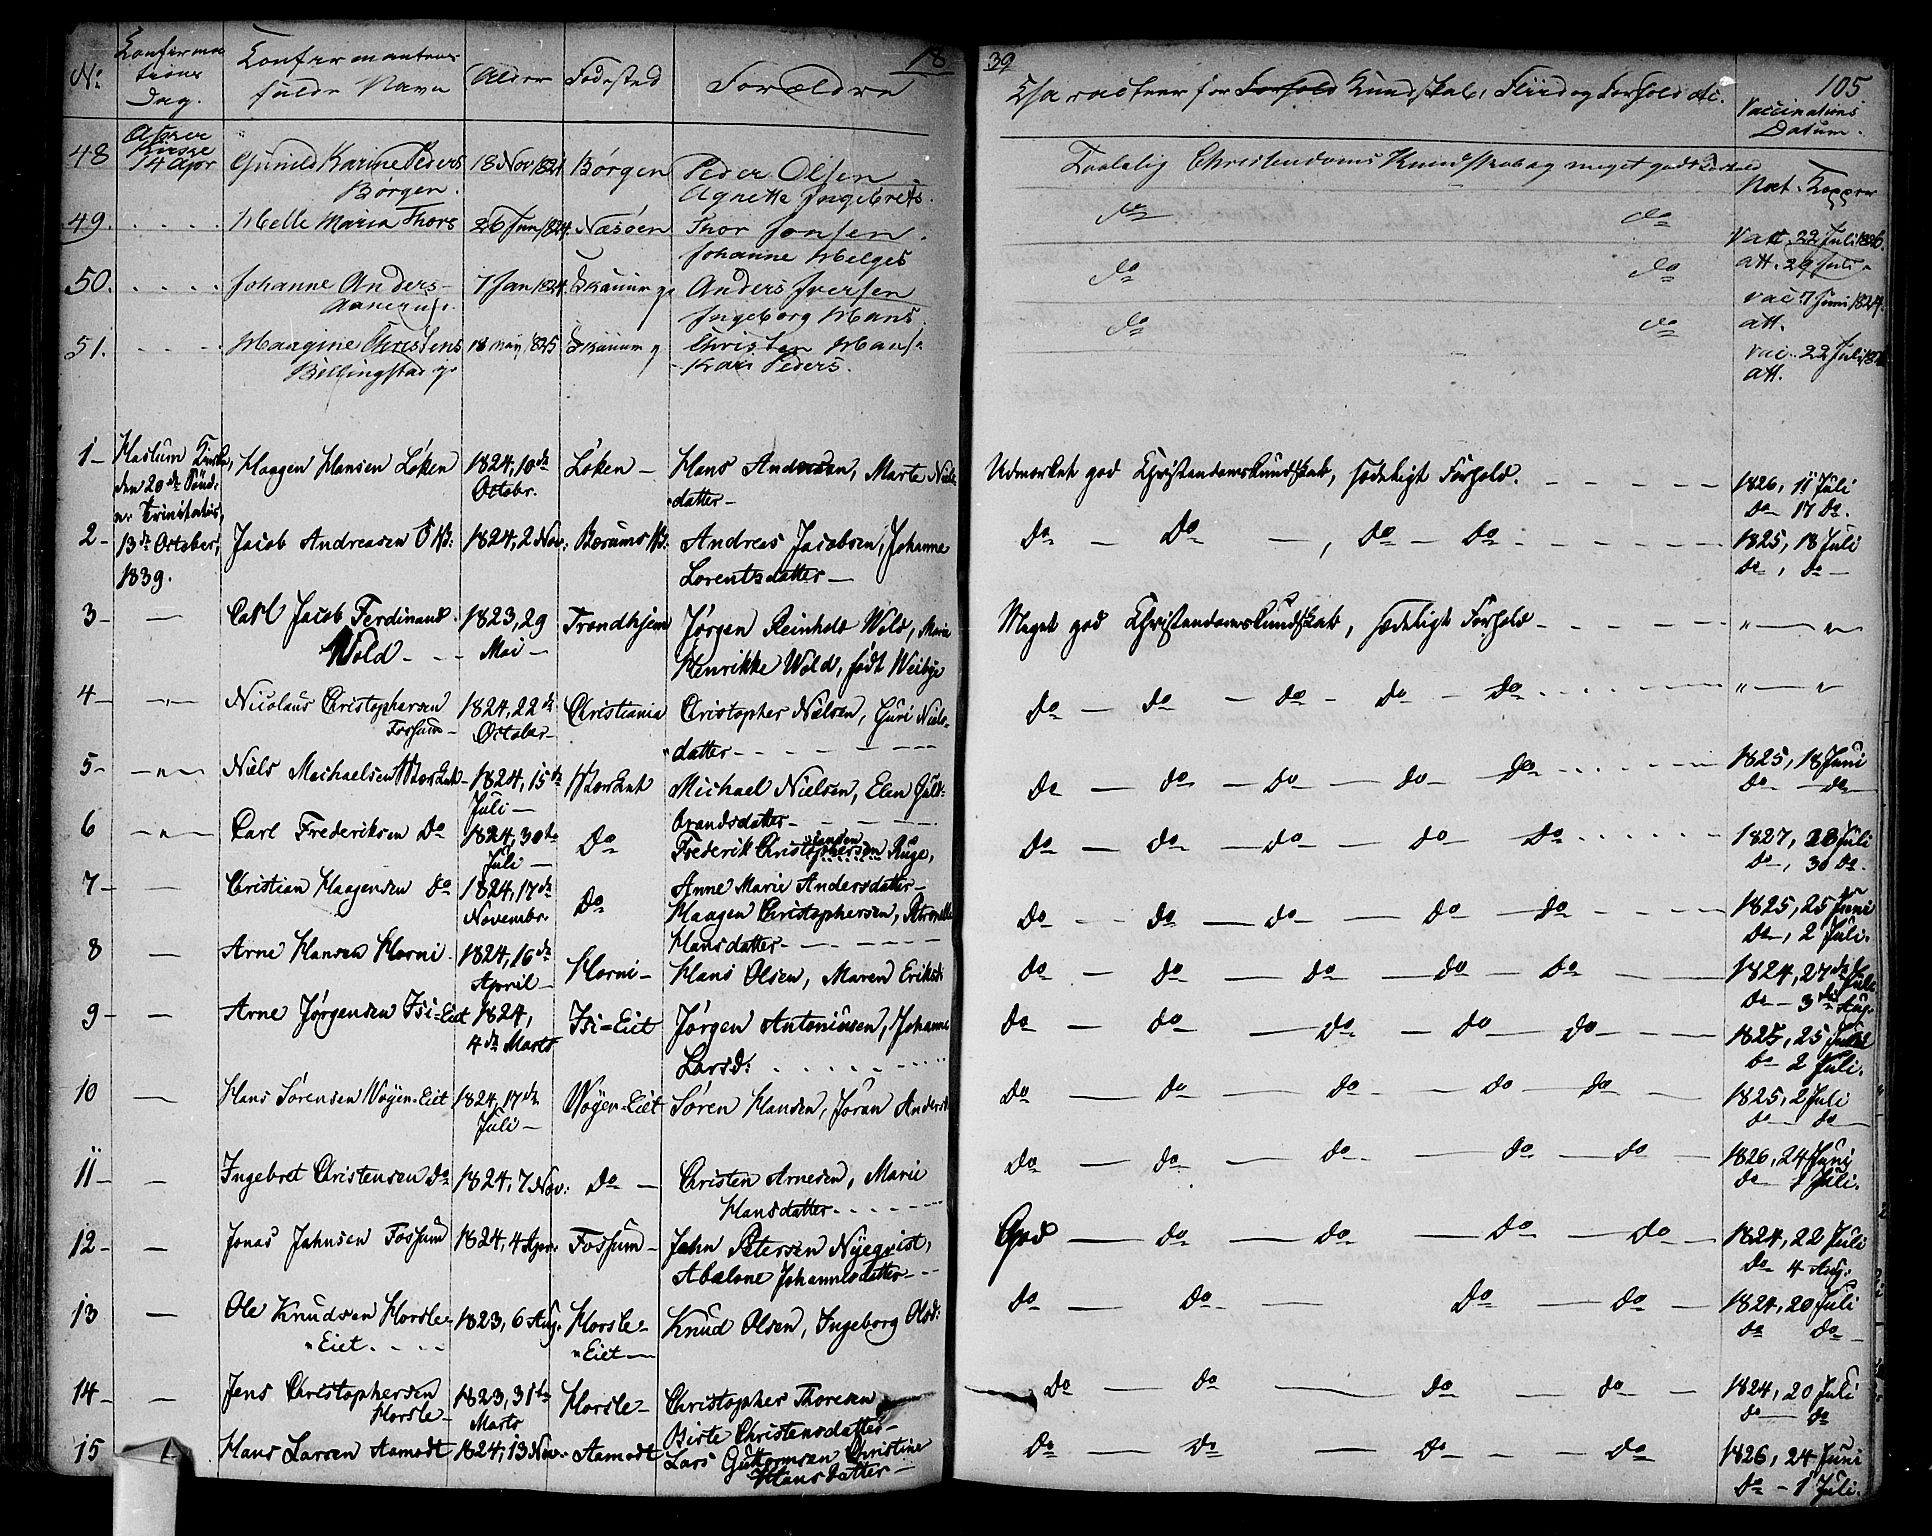 18 39
105
No
Confirma
tions
Dag.
Confirmantens
fulde Navn
Alder
Fødested
Forældre
Characteer for Forhold Kundskab, Fliid og Forhold etc.
Vaccinations
Datum.
48 Asker Kirke 14 Apr Gunild Karine Peders 18 Nov 1824 Børgen Peder Olsen
Borgen. Agnette Ingebrets.
Taalelig Christendoms Kundskab og meget godt Forhold Nat. Kopper
49. . . . . Helle Maria Thors 26 Jun 1824. Næsøen Thor Jonsen.
Johanne Helges
do do Vac 22 Juli 1826.
att. 29 Juli
50. . . . . Johanne Anders- 7 Jan 1824. Skaūum Anders Iversen
Ingeborg Hans
do do Vac 7 Juni 1824.
att.
51. . . . . Maregine Christens 18 maj 1825 Skaūum Christen Hans.
Billingstad Kari Peders.
do do vac. 22 Juli
att.
1 - Haslum Kirke, Haagen Hansen Løken 1824, 10de Løken - Hans Andersen, Marte Niels
den 20de Sönd: Octobr. datter -
n. Trinitatis,
Udmærket god Christendomskundskab, sædeligt Forhold. 1826, 11 Juli
Do 17 Do.
2 - 13de October, Jacob Andreasen 1824, 2 Nov: Bærums Andreas Jacobsen, Johanne
1839. Lorentsdatter -
Do - Do - , Do - Do 1825, 18 Juli
do, do -
3 - - Carl Jacob Ferdinand 1823, 29 Trondhjem Jørgen Reinhold Wold, Marie
Wold - Mai - Henrikke Wold, født Weibye
Meget god Christendomskundskab, sædeligt Forhold - " - "
4 - " - Nicolaus Christophersen 1824, 22de Christiania Cristopher Nielsen, Guri Niels-
Fossum - October - datter -
do - do - do - do - do " - "
5 - " - Niels Michaelsen 1824, 15de Michael Nielsen, Elen Guld-
Juli - brandsdatter -
do - do - do - do - do 1825, 18 Juni
do - do
6 - " - Carl Frederiksen Do 1824, 30te Do Frederik Christophersen Ruge,
Juli - Anne Marie Andersdatter -
do - do - do - do - do 1827, 23 Juli
do, 30 do.
7 - - Christian Haagensen Do 1824, 17de Do Haagen Christophersen, Petronelle
Novembr. Hansdatter -
do - do - do - do - do 1825, 25 Juni
do, 2 Juli.
8 - Arne Hansen Horni 1824, 16de Horni - Hans Olsen, Maren Eriksd:
April -
do - do - do - do - do 1824, 27de Juli
do - 3die Aug.
9 - - Arne Jørgensen Isi-Eiet 1824, Isi-Eiet Jørgen Antoniusen, Johanne
4de Marts Larsd:
do - do - do - do - do 1825, 25 Juni
do 2 Juli.
10 - Hans Sörensen Wøyen-Eiet 1824, 17de Wøyen-Eiet Søren Hansen, Joran Andersd
Juli -
do - do - do - do - do 1825, 2 Juli
do do
11 - - Ingebret Christensen do 1824, 7 Nov: Do - Christen Arnesen, Marie
Hansdatter -
do - do - do - do - do 1826, 24 Juni
do - 1 Juli.
12 - - Jonas Jahnsen Fossum 1824, 4 Apr: Fossum - Jahn Petersen Nyeqvist,
Abelone Johannesdatter -
God - do - do - do - do 1824, 22 Juli
Do 4 Aug:
13 - Ole Knudsen Horsle- 1823, 6 Aug. Horsle- Knud Olsen, Ingeborg Olsd:
"Eiet. "Eiet -
do - do - do - do 1824, 20 Juli
do do
14 - - Jens Christophersen 1823, 31te Horsle - Christopher Thoresen
Horsle - Marts Birte Christensdatter -
do - do - do - do 1824, 20 Juli
do - do
15 Hans Larsen Aamodt 1824, 13 Nov. Aamodt Lars Guttormsen Christine
Hansdatter -
do - do - do - do 1826, 24 Juni
Do - 1 Juli.